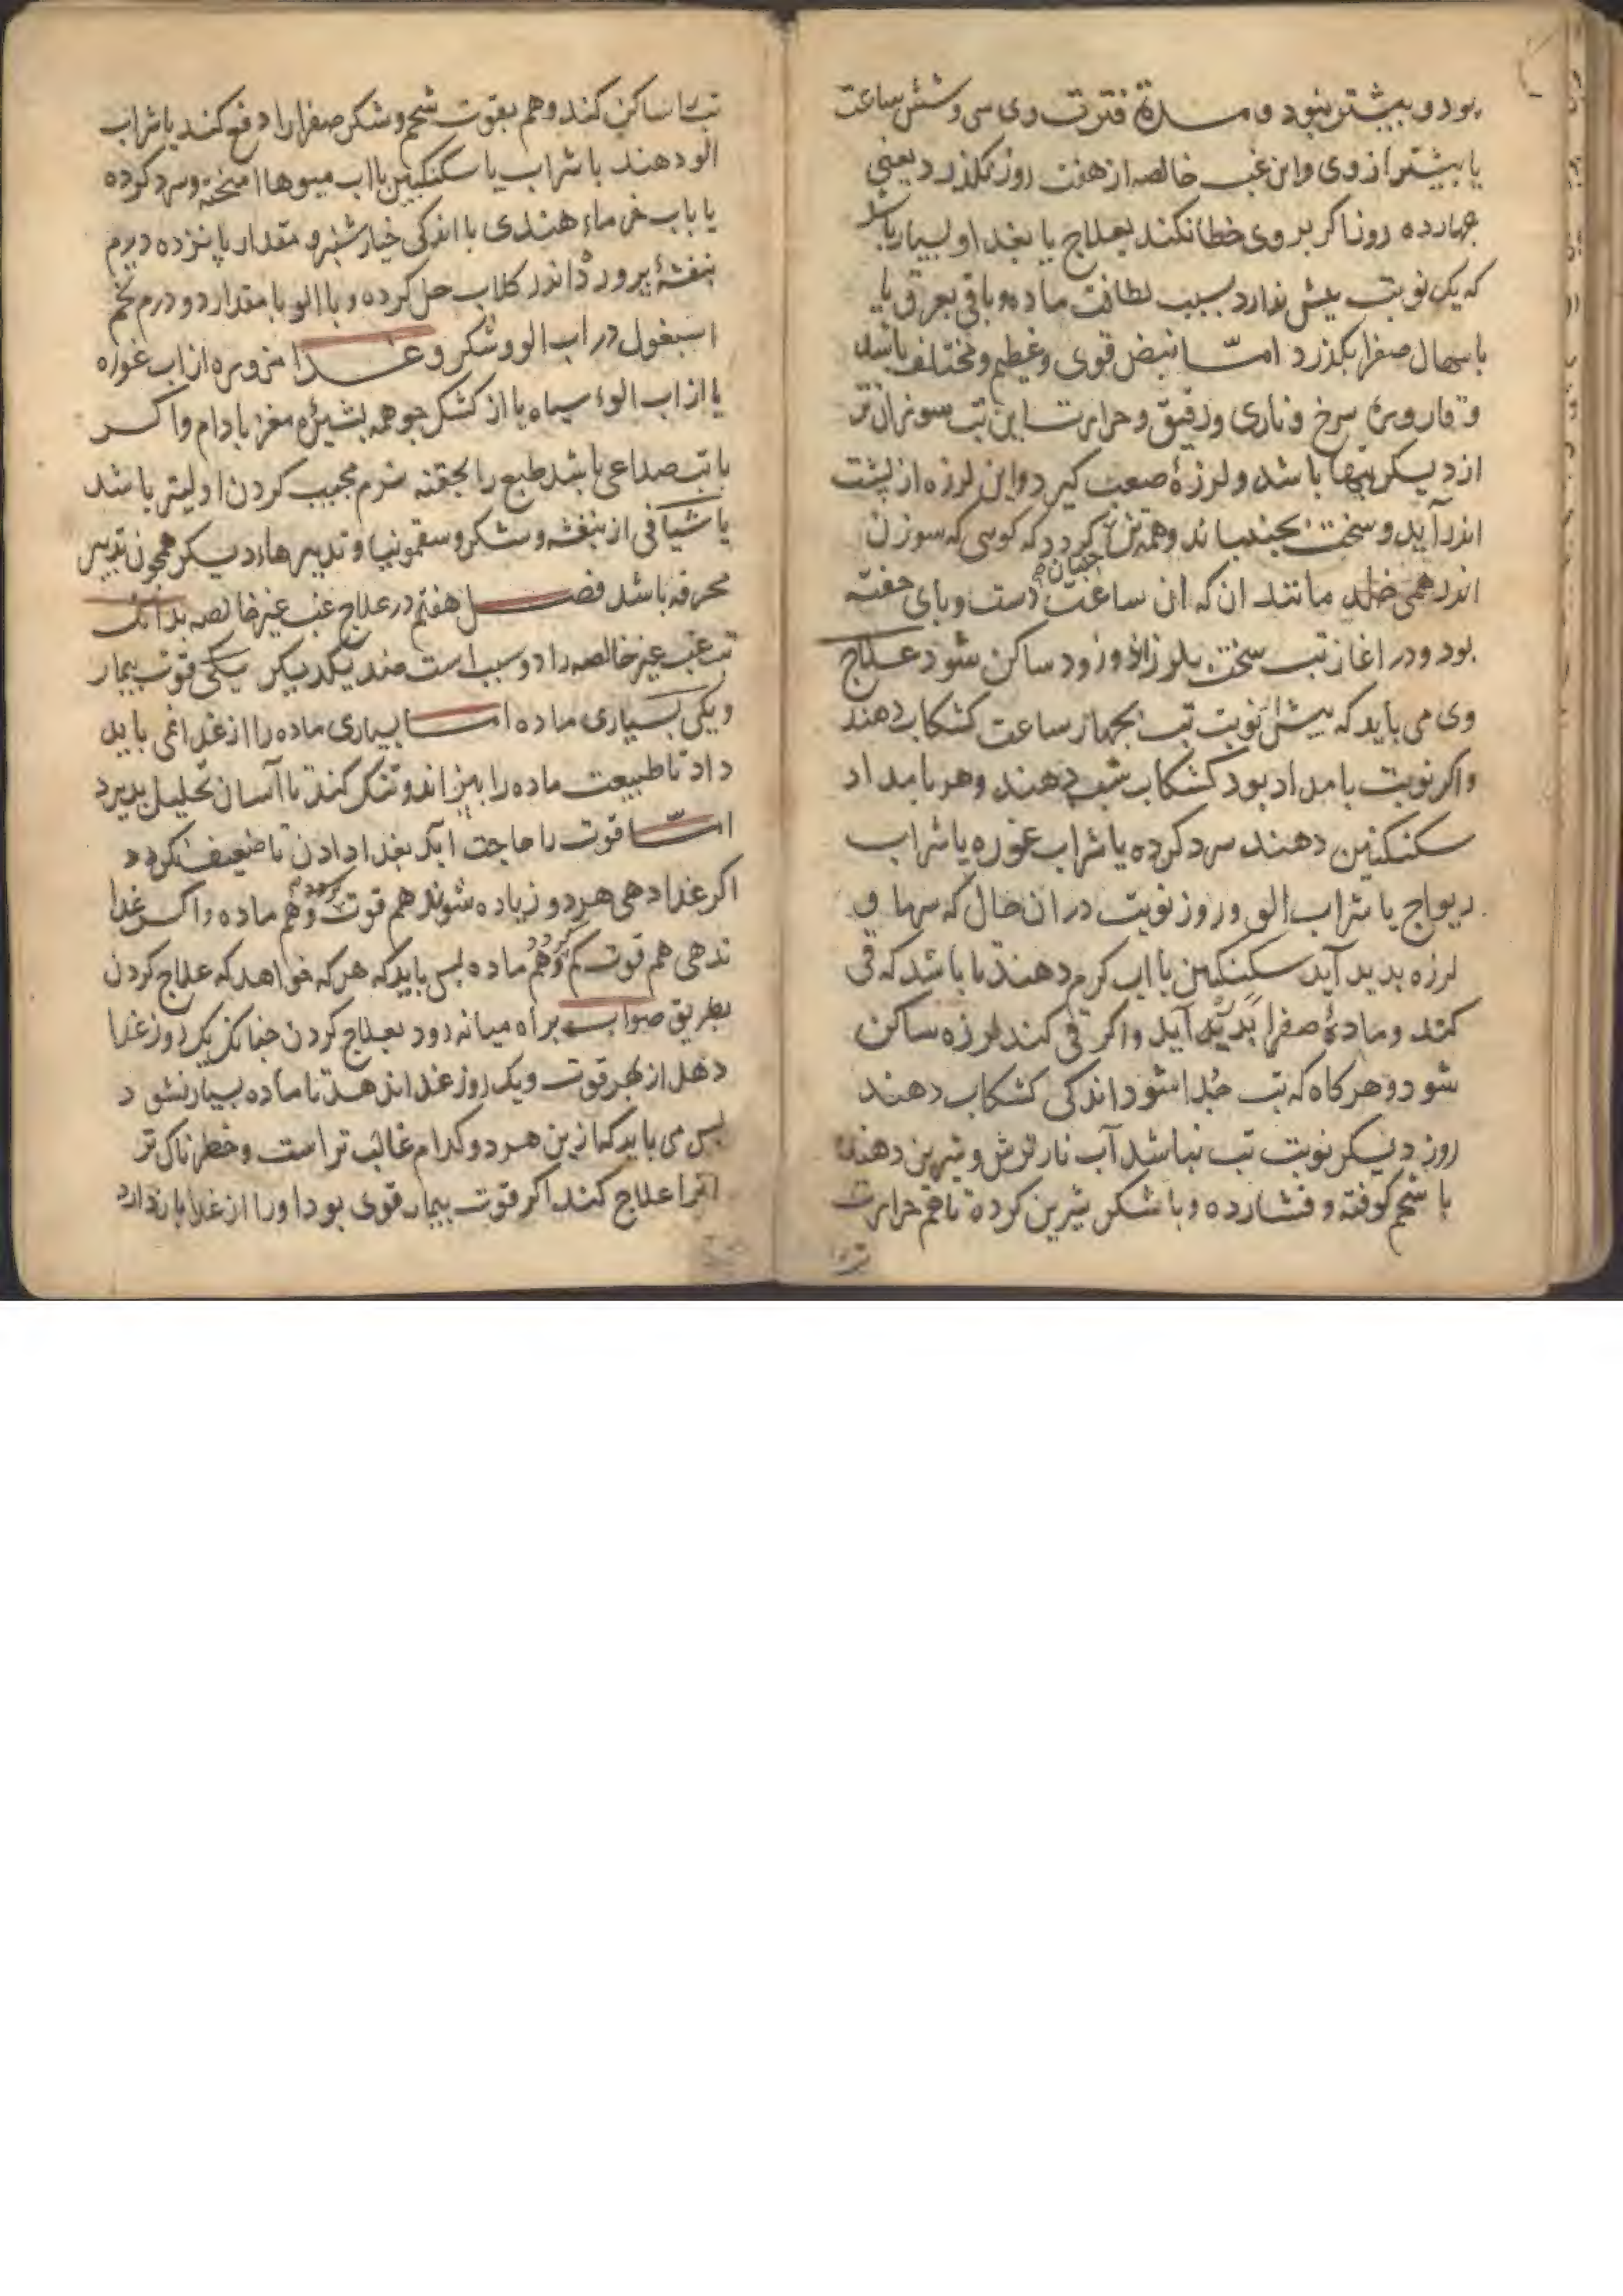 بود و بیشتر نبود و مدة فترت وی سی و شش ساعت
یا بیشتر از وی و این غب خالصه از هفت روز نگذرد یعنی
جهارده روز تا کر بر وی خطا نکند بعلاج یا بغدا و بسیار باشد
که یک نوبت بیش ندارد بسبب لطافت ماده و باقی بعرق یا
باسهال صفرا بکذرد امّا نبض قوی و عظیم و مختلف باشد
و قارورة سرخ و ناری و رقیق و حرارت این تب سوزان تر
از دیکر تبها باشد و لرزهٔ صعب کیرد و این لرزه از پشت
اندر آید و سخت بجنباند و همه تن کردد که کوسی که سوزن
اندر همی خلد مانند ان که ان ساعت جنبان دست و بای خفته
بود و در اغاز تب سخت بلرزاند و زود ساکن شود علاج
وی می باید که بیش از نوبت تب بجهار ساعت کشکاب دهند
و اکر نوبت بامداد بود کشکاب شب دهند و هر بامداد
سکنکبین دهند سرد کرده یا شراب غوره یا شراب
ریواج یا شراب الو و روز نوبت در ان حال که سرما و
لرزه بدید آید سکنکبین با اب کرم دهند تا باشد که قی
کند و مادهٔ صفرا بدید آید و اکر قی کند لرزه ساکن
شود و هرکاه که تب جدا شود اندکی کشکاب دهند
روز دیکر نوبت تب نباشد آب نار ترش و شیرین دهند
با شحم کوفته و فشارده و با شکر شیرین کرده تا هم حرارت
تب
تب را ساکن کند و هم بقوت شحم و شکر صفرا را دفع کند یا شراب
الو دهند یا شراب یا سکنکبین با اب میوها امیخته و سرد کرده
یا باب خرماء هندی با اندکی خیار شنبر و مقدار پانزده درم
بنفشهٔ پرورد اندر کلاب حل کرده و با الو با مقدار دو درم تخم
اسبغول در اب الو و شکر و غدا مزوره از اب غوره
یا از اب الوء سیاه یا از کشک جو همه بشیرهٔ مغز بادام و اکر
با تب صداعی باشد طبع را بحقنه نرم مجیب کردن اولیتر باشد
یا شیافی از بنفشه و شکر و سقمونیا و تدبیرهاء دیکر همچون تدبیر
محرقه باشد فصل هفتم در علاج غب غیر خالصه بدانک
تب غب غیر خالصه را دو سبب است ضد یکدیکر یکی قوت بیمار
و یکی بسیاری ماده امّا بسیاری ماده را از غدا غمی باید
داد تا طبیعت ماده را بپزاند و تنک کند تا آسان تحلیل بدیرد
امّا قوت را حاجت آید بغدا دادن تا ضعیف نکردد
اکر غدا دهی هر دو زیاده شوند هم قوت کردد و هم ماده و اکر غدا
ندهی هم قوت کم کردد و هم ماده بس باید که هر که خواهد که علاج کردن
بطریق صواب براه میانه رود بعلاج کردن جنانک یک روز غدا
دهد از بهر قوت و یک روز غدا ندهد تا ماده بسیار نشود
بس می باید که ازین هر دو کدام غالب تر است و خطرناک تر
انرا علاج کند اکر قوت بیمار قوی بود او را از غدا باز دارد